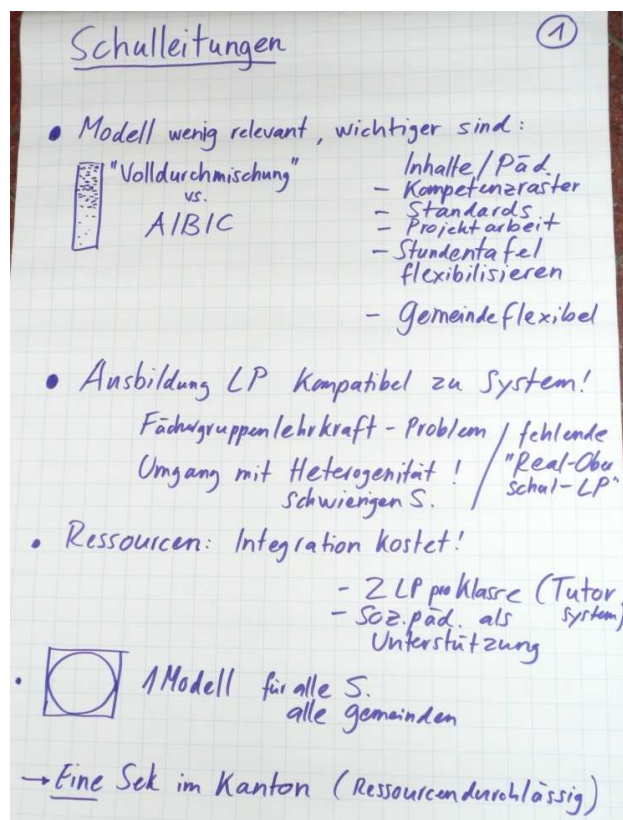 Schulleitungen
1
• Modell wenig relevant, wichtiger sind:
"Volldurchmischung"
vs.
A/B/C
Inhalte/Päd.
- Kompetenzraster
- Standards
- Projektarbeit
- Stundentafel
flexibilisieren
- Gemeindeflexibel
• Ausbildung LP Kompatibel zu System!
Fächergruppenlehrkraft - Problem / fehlende
"Real-Ober
schul-LP"
Umgang mit Heterogenität!
schwierigen S.
• Ressourcen: Integration kostet!
- 2 LP pro Klasse (Tutor
system)
- Soz.päd. als
Unterstützung
• 1 Modell für alle S.
alle Gemeinden
→ Eine Sek im Kanton (Ressourcendurchlässig)